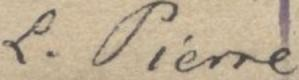 L. Pierre